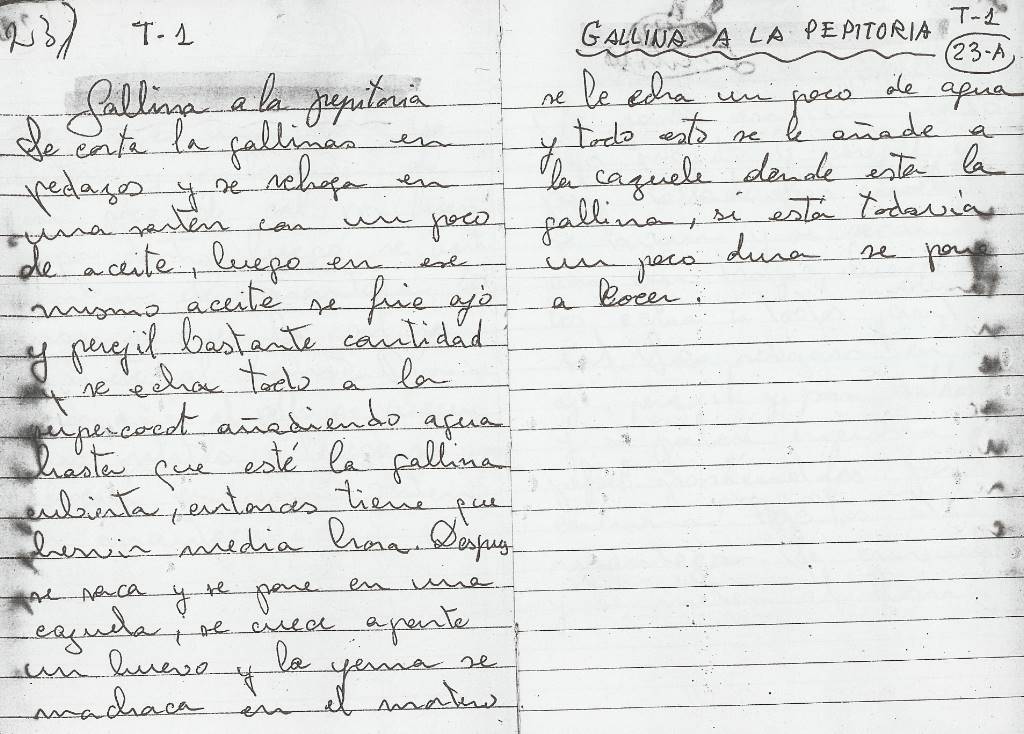 23) T-1
Gallina a la pepitoria
Se corta la gallinas en
pedazos y se rehoga en
una sartén con un poco
de aceite, luego en ese
mismo aceite se frie ajo
y perejil bastante cantidad
y se echa todo a la
supercocot añadiendo agua
hasta que esté la gallina
cubierta, entonces tiene que
hervir media hora. Despues
se saca y se pone en una
cazuela, se cuece aparte
un huevo y la yema se
machaca en el mortero
GALLINA A LA PEPITORIA T-1
23-A
se le echa un poco de agua
y todo esto se le añade a
la cazuela donde esta la
gallina, si está todavia
un poco dura se pone
a cocer.